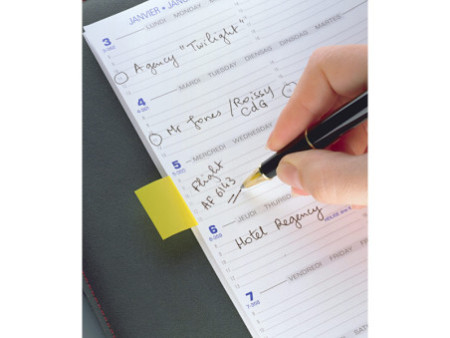 JANVIER • JAN
3
LUNDI MONDAY
Agency "Twilight"
MARDI TUESDAY DIENSTAG DINSDAG MARTES
4
Mr Jones / Roissy
CdG
MERCREDI WEDNESDAY
5
Flight
AF 6143
JEUDI THURSD
6
Hotel Regency
VENDREDI FRIDAY
7